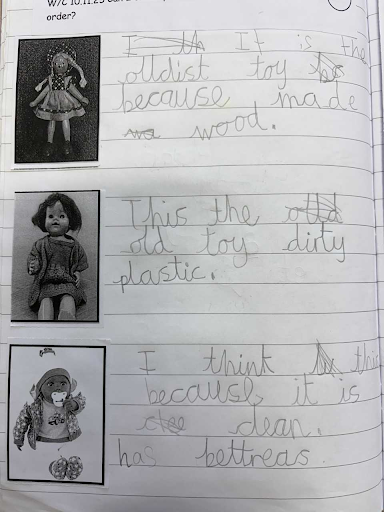 W/C 10.11.25
order?
I It is the
olldist toy
because made
wood.
This the
old toy dirty
plastic.
I think this
because it is
clean.
has bettreas